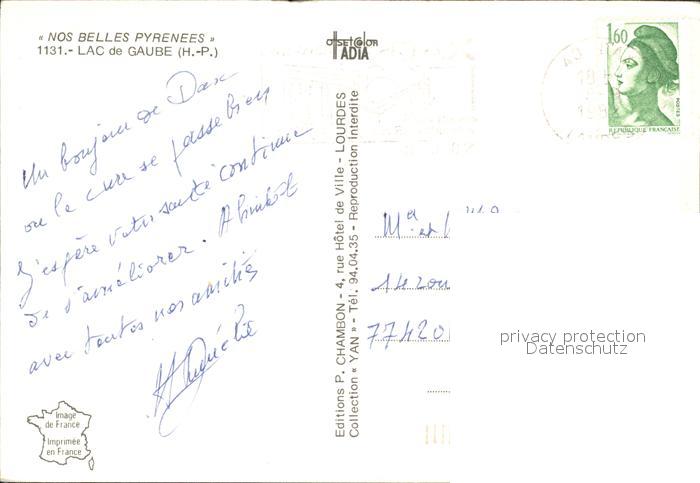 « NOS BELLES PYRENEES »
1131.- LAC de GAUBE (H.-P.)
Un bonjour de Dax
ou la cure se passe bien
J'espère votre santé continue
de s'améliorer. A bientôt
avec toutes nos amitiés
Image
de France
Imprimée
en France
offset color
IADIA
Editions P. CHAMBON - 4, rue Hôtel de Ville - LOURDES
Collection « YAN » - Tél. 94.04.35 - Reproduction Interdite
1,60
POSTES
REPUBLIQUE FRANÇAISE
Mr et
14
77420
privacy protection
Datenschutz